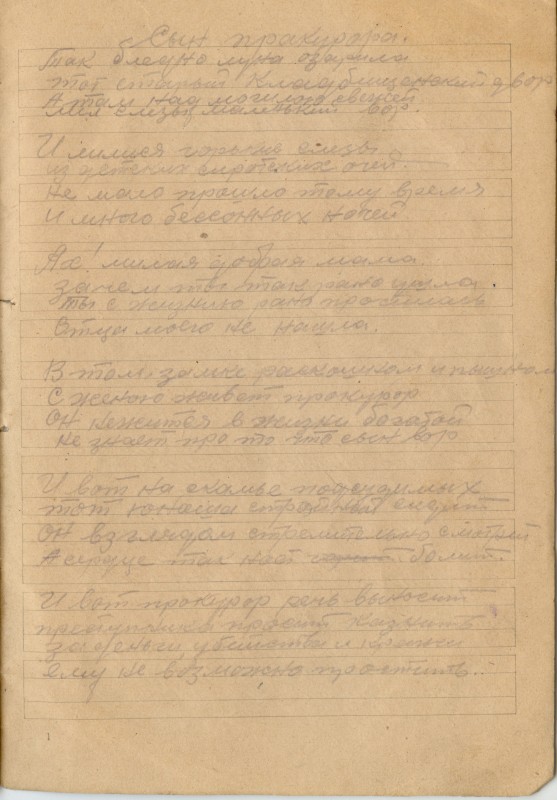 Сын пракурора.
Так бледно луна озарила
тот старый Кладбищенский двор
А там над могилою
лил слёзы маленький вор.
И лилися горькие слезы
из детских сиротских очей.
Не мало прошло тому время
И много бессонных ночей.
Ах! милая добрая мама.
зачем ты так рано ушла
ты с жизнию рано простилась
Отца моего не нашла.
В том замке роскошном и пышном
С женою живет прокурор
Он нежится в жизни богатой
не знает про то что сын вор
И вот на скамье подсудимых
тот юноша стройный сидит
Он взглядом стремительно смотрит
А сердце так болит.
И вот прокурор речь выносит
преступника просит казнить
за деньги убийства и кражи
ему не возможно простить..
1